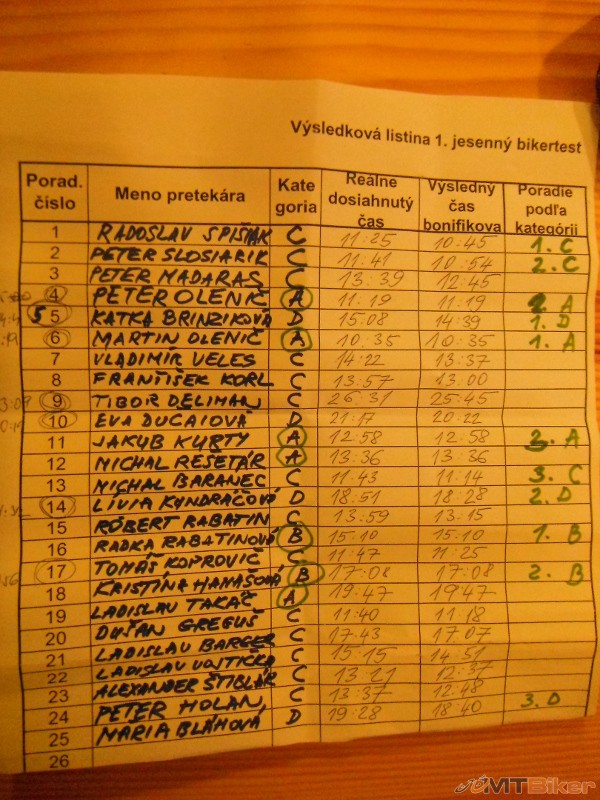 Výsledková listina 1. jesenný bikertest
Porad. číslo Meno pretekára Kate goria Reálne dosiahnutý čas Výsledný čas bonifikova Poradie podľa kategórii
1 RADOSLAV SPIŠIAK C 11:25 10:45 1. C
2 PETER SLOSIARIK C 11:41 10:54 2. C
3 PETER MADARAS C 13:39 12:45
4 PETER OLENIČ A 11:19 11:19 2. A
5 5 KATKA BRINZIKOVÁ D 15:08 14:39 1. D
6 MARTIN OLENIČ A 10:35 10:35 1. A
7 VLADIMÍR VELES C 14:22 13:37
8 FRANTIŠEK KORL C 13:57 13.00
9 TIBOR DELIMAN C 26:31 25:45
10 EVA DUČAIOVÁ D 21:17 20:22
11 JAKUB KURTY A 12:58 12:58 3. A
12 MICHAL REŠETÁR A 13:36 13:36
13 MICHAL BARANEC C 11:43 11:14 3. C
14 LÍVIA KUNDRÁČOVÁ D 18:51 18:28 2. D
15 RÓBERT RABATIN C 13:59 13:15
16 RADKA RABATINOVÁ B 15:10 15.10 1. B
17 TOMÁŠ KOPROVIČ C 11:47 11:25
18 KRISTÍNA HANASOVÁ B 17:08 17:08 2. B
19 LADISLAV TAKÁČ A 19:47 1947
20 DUŠAN GREGUŠ C 11:40 11:18
21 LADISLAV BARGER C 17:43 17:07
22 LADISLAV VOJTIČKA C 15:15 14:51
23 ALEXANDER ŠTIBLÁR C 13:21 12:37
24 PETER HOLAN C 13:37 12:48
25 MARIA BLÁHOVÁ D 19:28 18:40 3. D
26
MTBiker